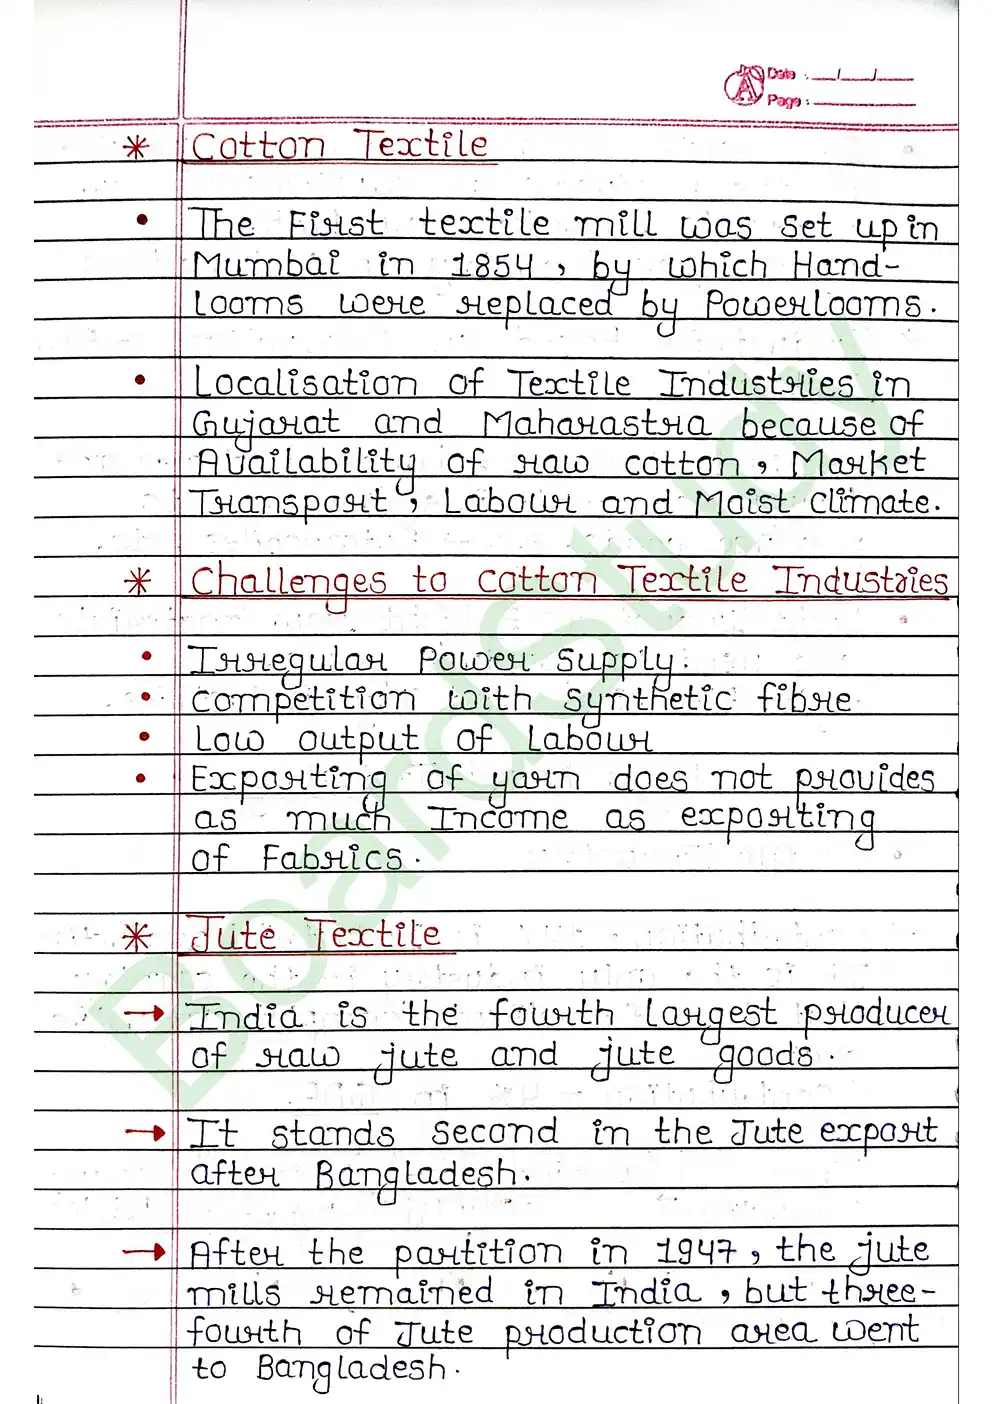 Date : __/__/__
Page : ______
* Cotton Textile
• The First textile mill was set up in
Mumbai in 1854, by which Hand-
Looms were replaced by Powerlooms.
• Localisation of Textile Industries in
Gujarat and Maharastra because of
Availability of raw cotton, Market
Transport, Labour and Moist Climate.
* Challenges to Cotton Textile Industries
• Irregular Power Supply.
• Competition with Synthetic fibre
• Low output of Labour
• Exporting of yarn does not provides
as much Income as exporting
of Fabrics.
* Jute Textile
→ India is the fourth largest producer
of raw jute and jute goods.
→ It stands Second in the Jute export
after Bangladesh.
→ After the partition in 1947, the jute
mills remained in India, but three-
fourth of Jute production area went
to Bangladesh.
BoardStudy